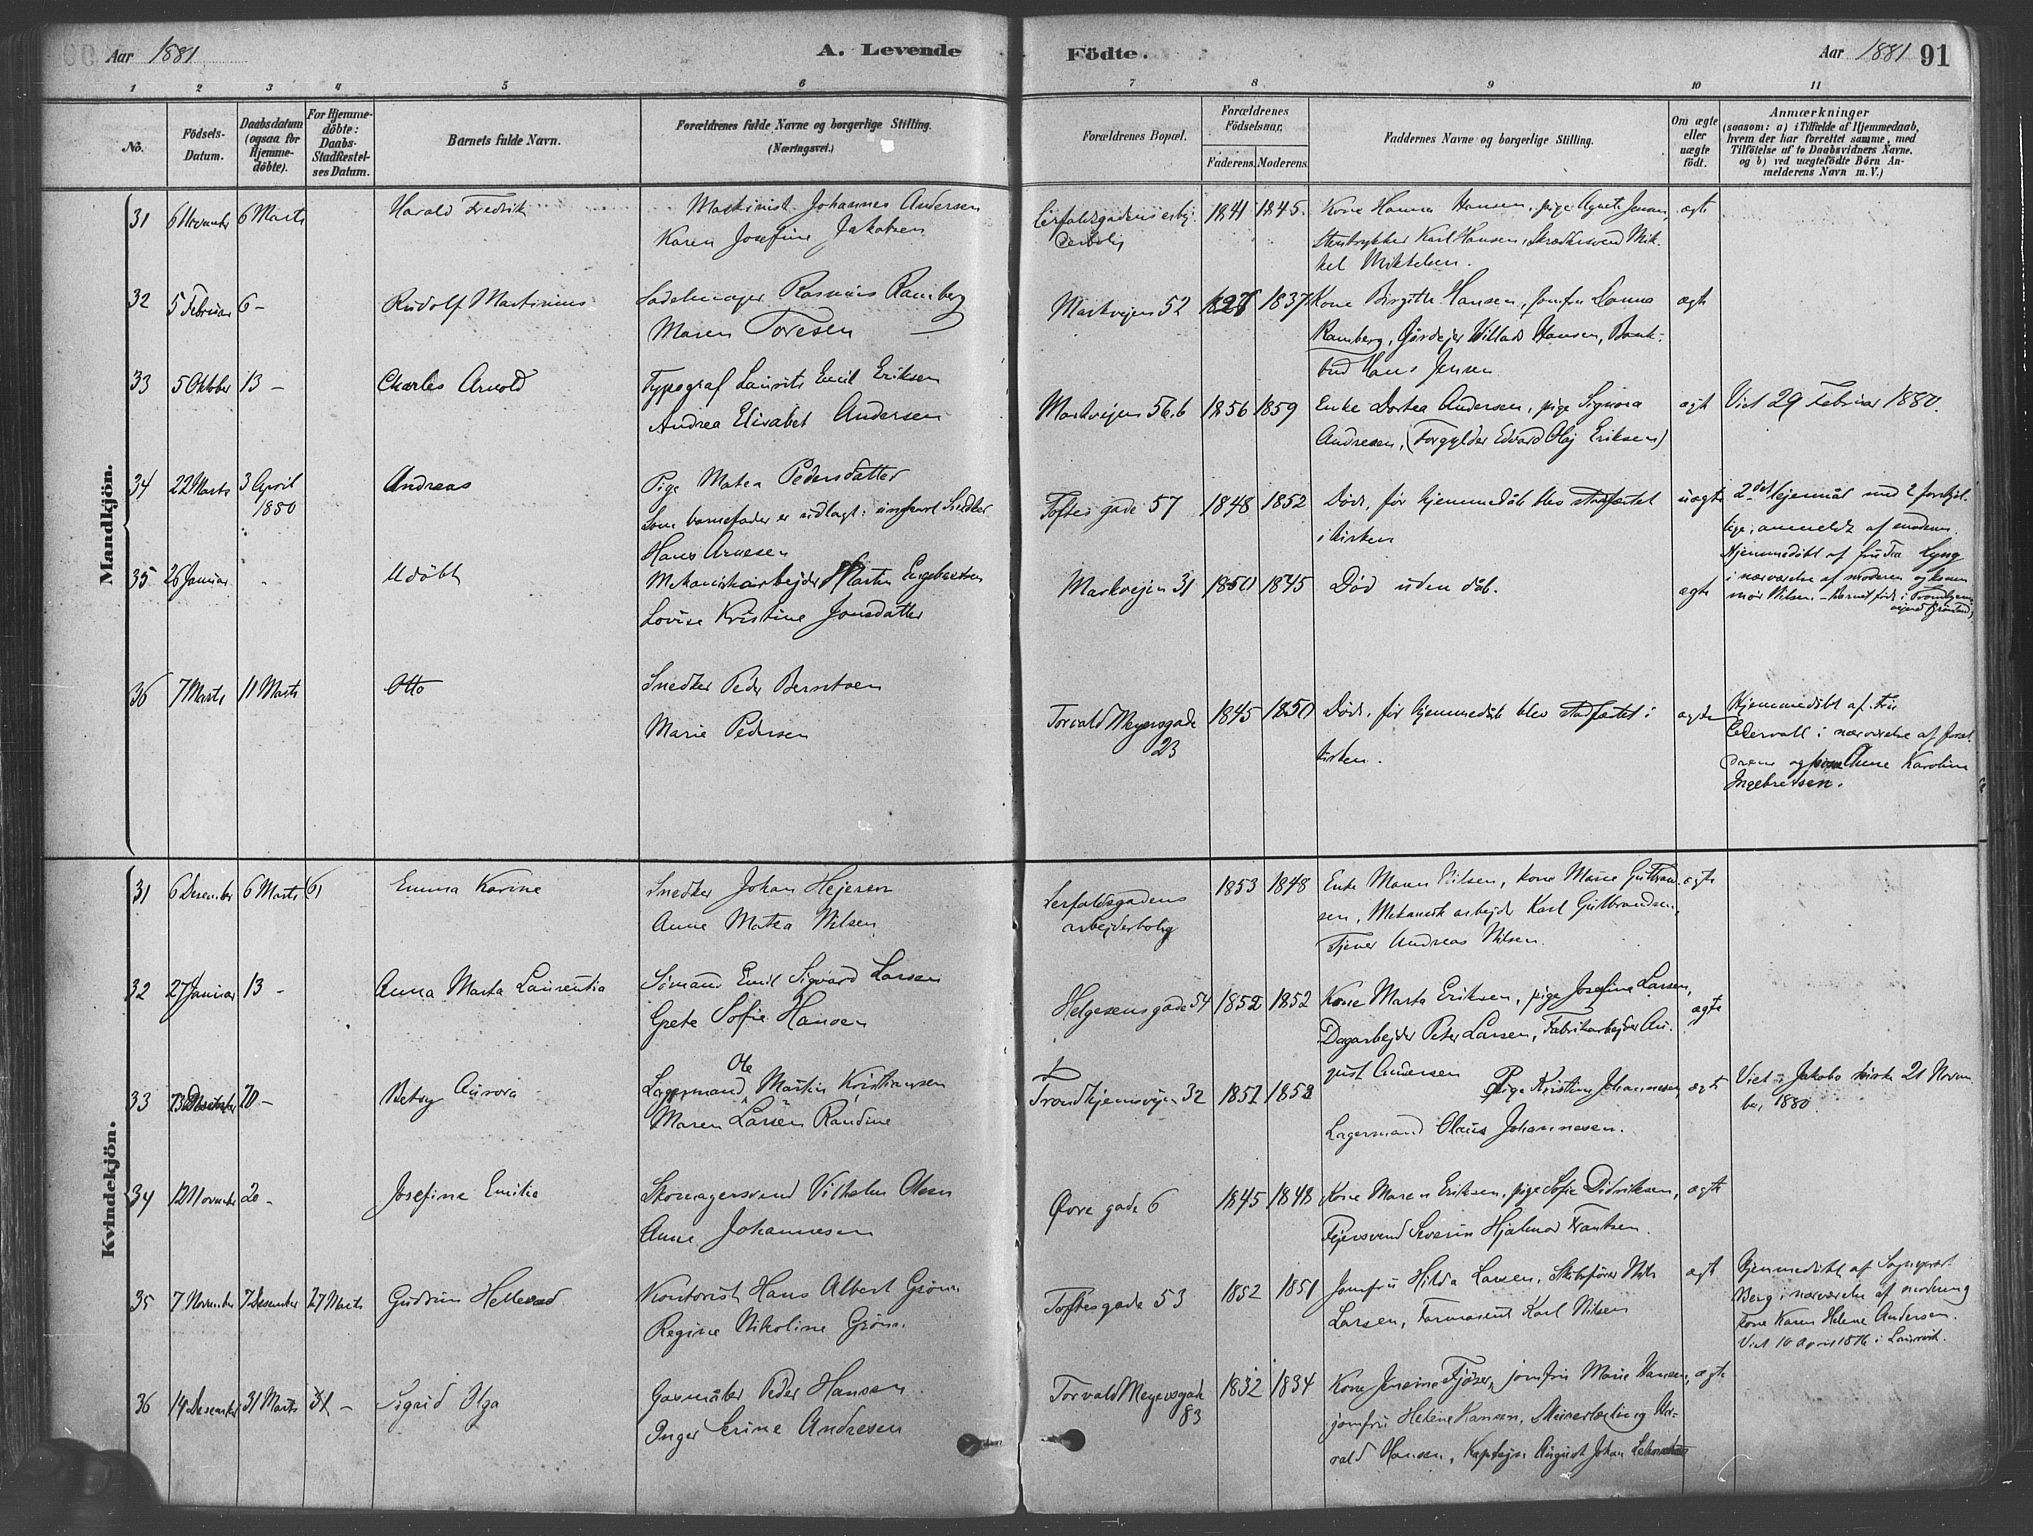 Aar 1881
A. Levende
Födte.
Aar 1881 91
1 2 3 4 5 6 7 8 9 10 11
No.
Födsels-Datum.
Daabsdatum (ogsaa for Hjemmedöbte).
For Hjemmedöbte: Daabs-Stadfæstelses Datum.
Barnets fulde Navn.
Forældrenes fulde Navne og borgerlige Stilling. (Næringsvei.)
Forældrenes Bopæl.
Forældrenes Födselsaar,
Faderens. Moderens.
Faddernes Navne og borgerlige Stilling.
Om ægte eller uægte födt.
Anmærkninger
(saasom: a) i Tilfælde af Hjemmedaab, hvem der har forrettet samme, med Tilföielse af to Daabsvidners Navne, og b) ved uægtefödte Börn Anmelderens Navn m. V.)
Mandkjön.
31 6 November 6 Marts Harald Fredrik
Maskinist Johannes Andersen
Karen Josefine Jakobsen
1841 1845.
Kone Hanna Hansen, pige Agnete Jensen,
Stentrykker Karl Hansen, Skræddersvend Mik-
kel Mikkelsen.
ægte
32 5 Februar 6 - Rudolf Martinius
Sadelmager Rasmus Ramberg
Maren Toresen
Markvejen 52 1837
Kone Birgitte Hansen, jomfru Hanna
Ramberg, Gårdejer Willads Hansen, Bank-
bud Hans Jensen
ægte
33 5 Oktober 13 - Charles Arnold
Typograf Laurits Emil Eriksen
Andrea Elisabet Andersen
Markvejen 56.b 1856 1859
Enke Dortea Andersen, pige Signora
Andresen, (Forgylder Edvard Olaj Eriksen)
ægte
Viet 29 Februar 1880.
34 22 Marts 3 April 1880 Andreas
Pige Matea Pedersdatter
Som barnefader er udlagt: ungkarl Snedker
Hans Arnesen
Toftes gade 57 1848 1852
Død, før hjemmedåb blev stadfæstet
i kirken
uægte
2det lejermål med 2 forskjel-
lige, anmeldt af moderen
Hjemmedöbt af fru Tea Lyng
i nærværelse af moderen og
mor Nilsen - Barnet født i
35 26 Januar Udöbt
Mekaniskarbejder Martin Engebretsen
Lovise Kristine Jonsdatter
Markvejen 31 1850 1845
Død uden dåb.
ægte
36 7 Marts 11 Marts Otto
Snedker Peder Berntsen
Marie Pedersen
Torvald Meyersgade 23
1845 1850
Død, før hjemmedåb blev stadfæstet i
kirken.
ægte
Hjemmedöbt af Fru
Cedervall i nærværelse af foræl-
drene og pige Anne Karoline
Ingebretsen.
Kvindekjön.
31 6 Desember 6 Marts Emma Karine
Snedker Johan Hejersen
Anne Matea Nilsen
Lerfaldsgadens
arbejderbolig
1853 1848
Enke Maren Nilsen, kone Marie Gulbrand-
sen, Mekanisk arbejder Karl Gulbrandsen,
Tjener Andreas Nilsen.
ægte
32 27 Januar 13 - Anna Marta Laurentia
Sömand Emil Sigvard Larsen
Grete Sofie Hansen
Helgesensgade 54 1852 1852
Kone Marta Eriksen, pige Josefine Larsen,
Dagarbejder Peter Larsen, Fabrikarbejder Au-
gust Andersen
ægte
33 20 - Betsy Aurora
Ole
Martin Kristiansen
Maren Larsen Randine
Trondhjemsvejen 32
Pige Kristine Johannesen,
Lagermand Olaus Johannesen.
ægte
Viet i Jakobs kirke 21 Novem
ber 1880.
34 12 November 20 - Josefine Emilie
Skomagersvend Vilhelm Olsen
Anne Johannesen
Øvre gade 6 1845 1848
Kone Maren Eriksen, pige Sofie Didriksen,
Severin Hjalmar Frantsen
ægte
35 7 November 7 Desember 27 Marts Gudrun
Kontorist Hans Albert Grönn
Regine Nikoline Grönn.
Toftesgade 53 1852 1851
Jomfru Hilda Larsen, Skibsfører Nils
Larsen, Farmaceut Karl Nilsen
ægte
Hjemmedöbt af Sogneprest
Berg i nærværelse af moderen og
kone Karen Helene Andersen.
Viet 10 April 1876 i Laurvik.
36 14 Desember 31 Marts 31 - Sigrid Olga
Gasmåler Peder Hansen
Inger Serine Andresen
Torvald Meyersgade 83
1832 1834
Kone Jensine Fjöser, jomfru Marie Hansen,
jomfru Helene Hansen, Har-
ald Hansen, Kaptejn August Johan
ægte